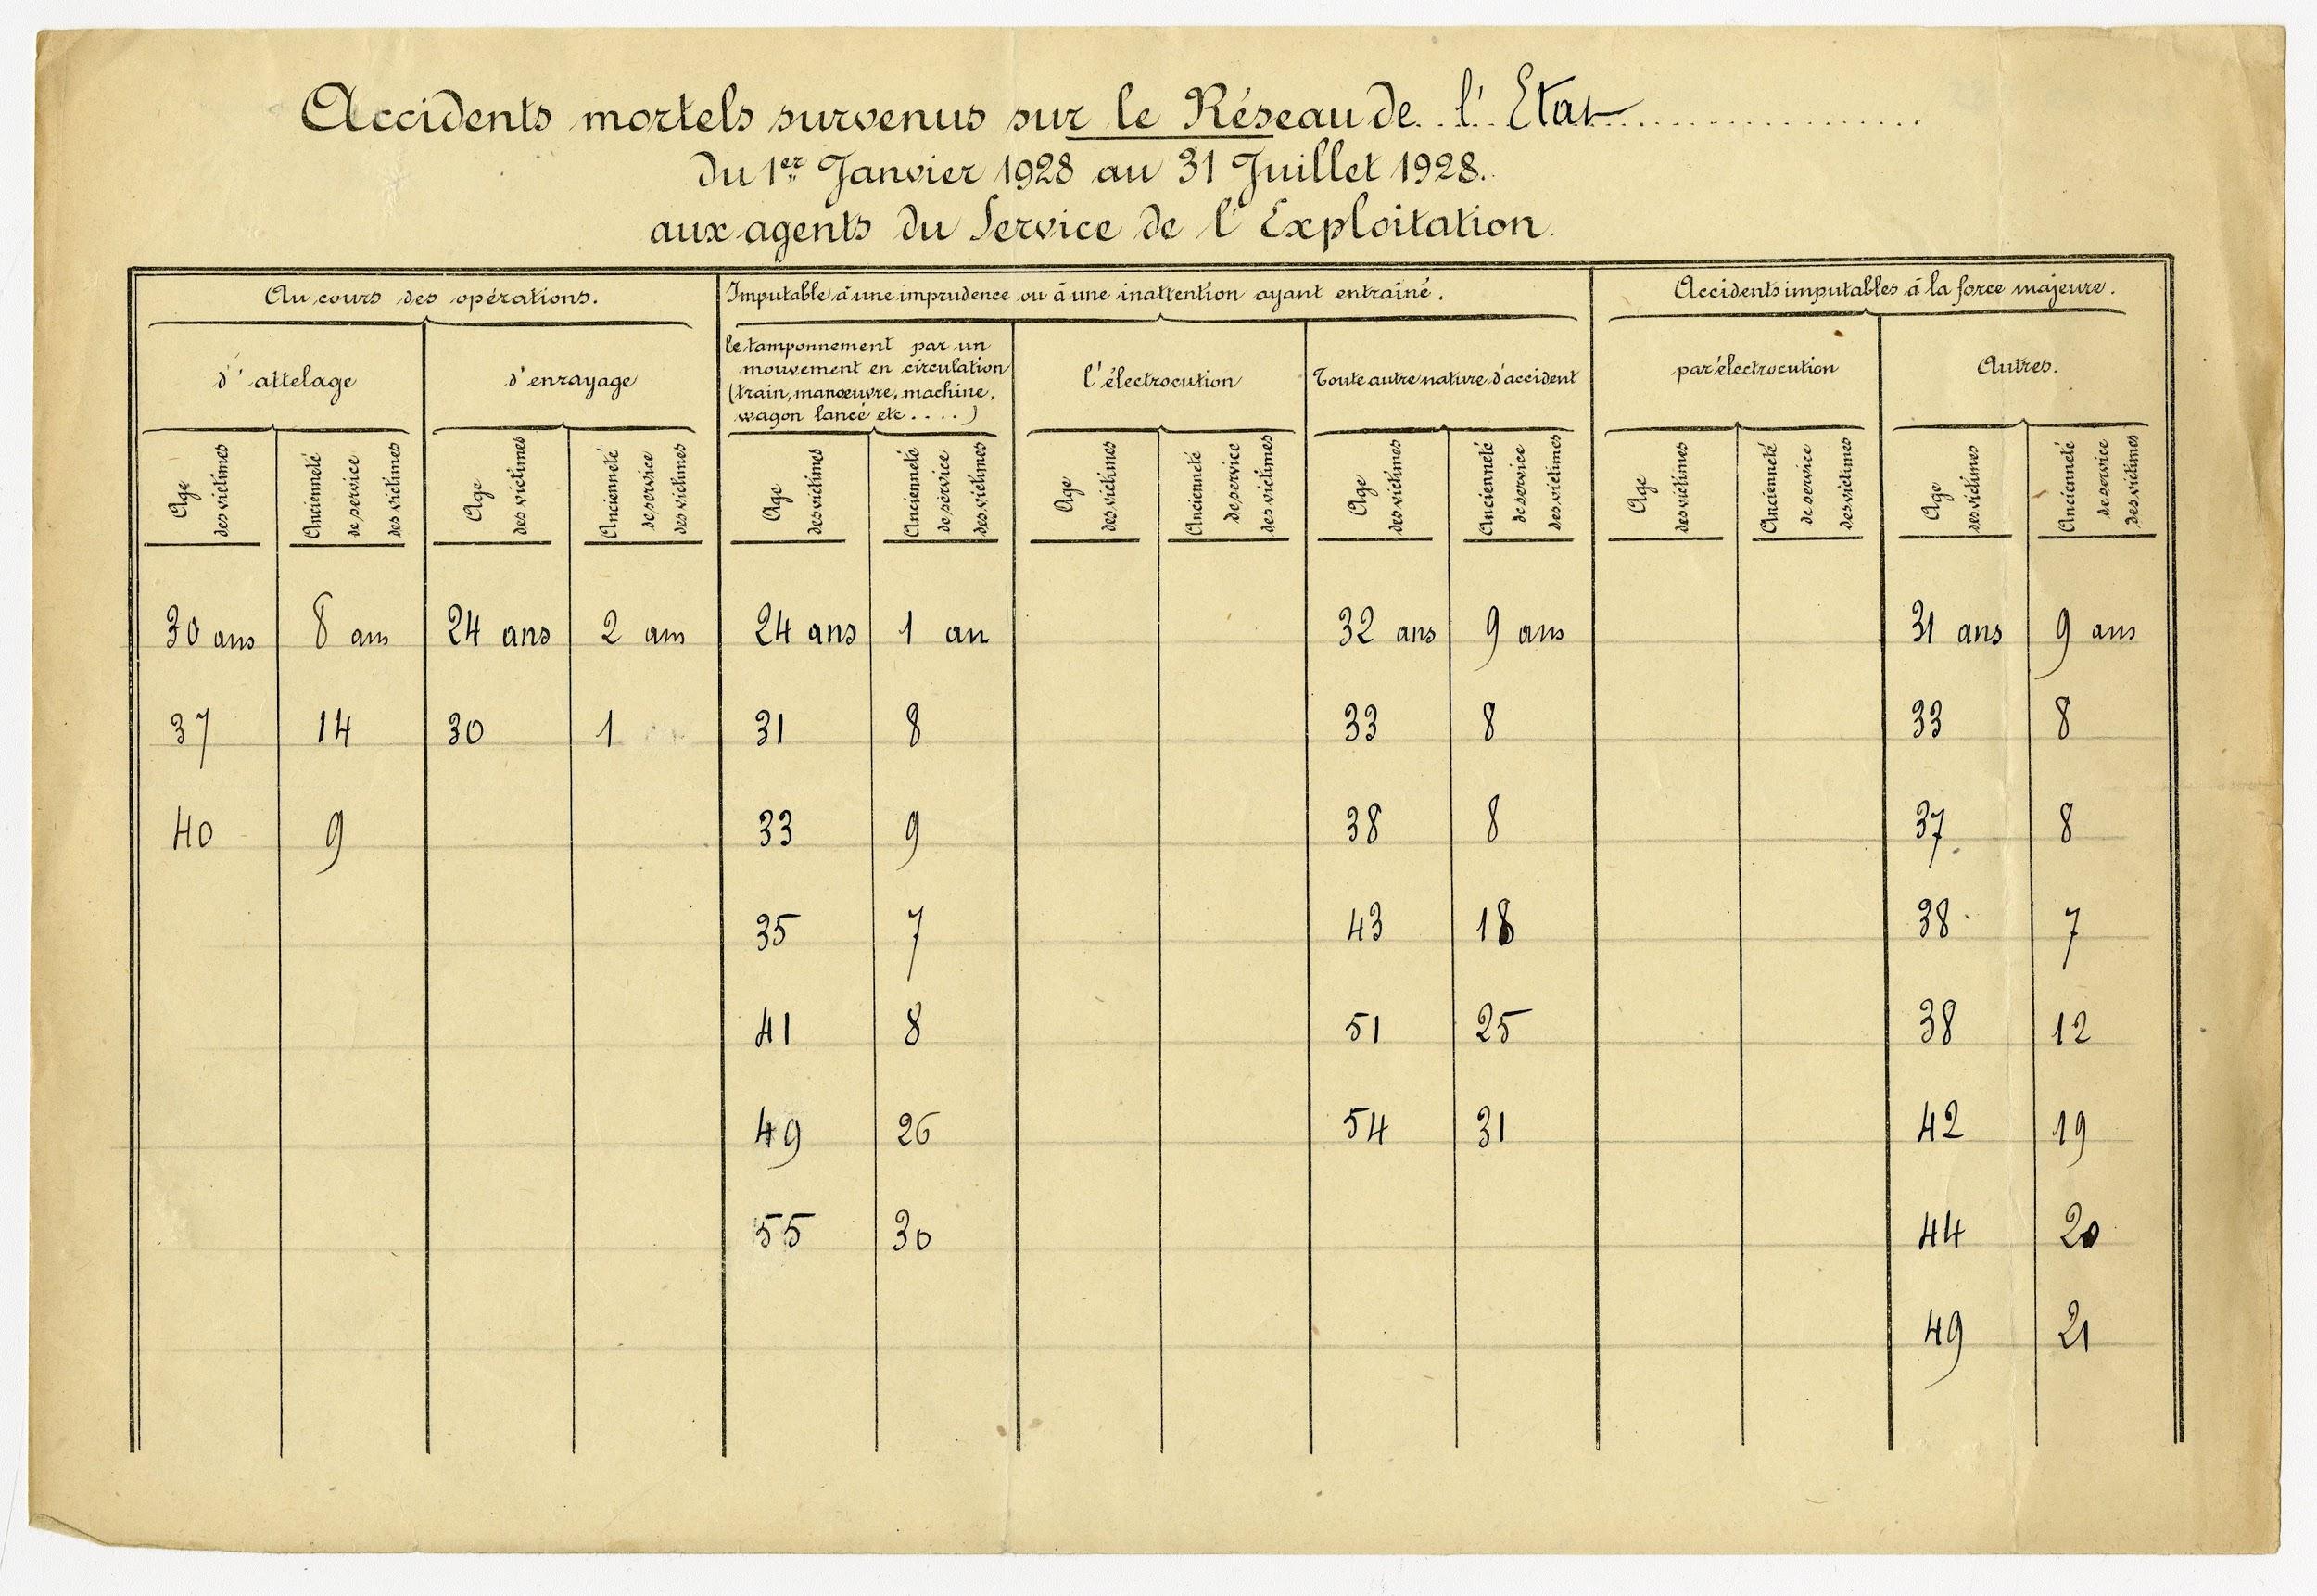 Accidents mortels survenus sur le Réseau de l'Etat
du 1er Janvier 1928 au 31 Juillet 1928.
aux agents du Service de l'Exploitation.
Au cours des opérations.
Imputable à une imprudence ou à une inattention ayant entraîné.
Accidents imputables à la force majeure.
d'attelage
d'enrayage
le tamponnement par un
mouvement en circulation
(train, manœuvre, machine,
wagon lancé etc....)
l'électrocution
Toute autre nature d'accident
par électrocution
Autres.
Age
des victimes
Ancienneté
de service
des victimes
Age
des victimes
Ancienneté
de service
des victimes
Age
des victimes
Ancienneté
de service
des victimes
Age
des victimes
Ancienneté
de service
des victimes
Age
des victimes
Ancienneté
de service
des victimes
Age
des victimes
Ancienneté
de service
des victimes
Age
des victimes
Ancienneté
de service
des victimes
30 ans 8 ans 24 ans 2 ans 24 ans 1 an 32 ans 9 ans 31 ans 9 ans
37 14 30 1 31 8 33 8 33 8
40 9 33 9 38 8 37 8
35 7 43 18 38 7
41 8 51 25 38 12
49 26 54 31 42 19
55 30 44 20
49 21